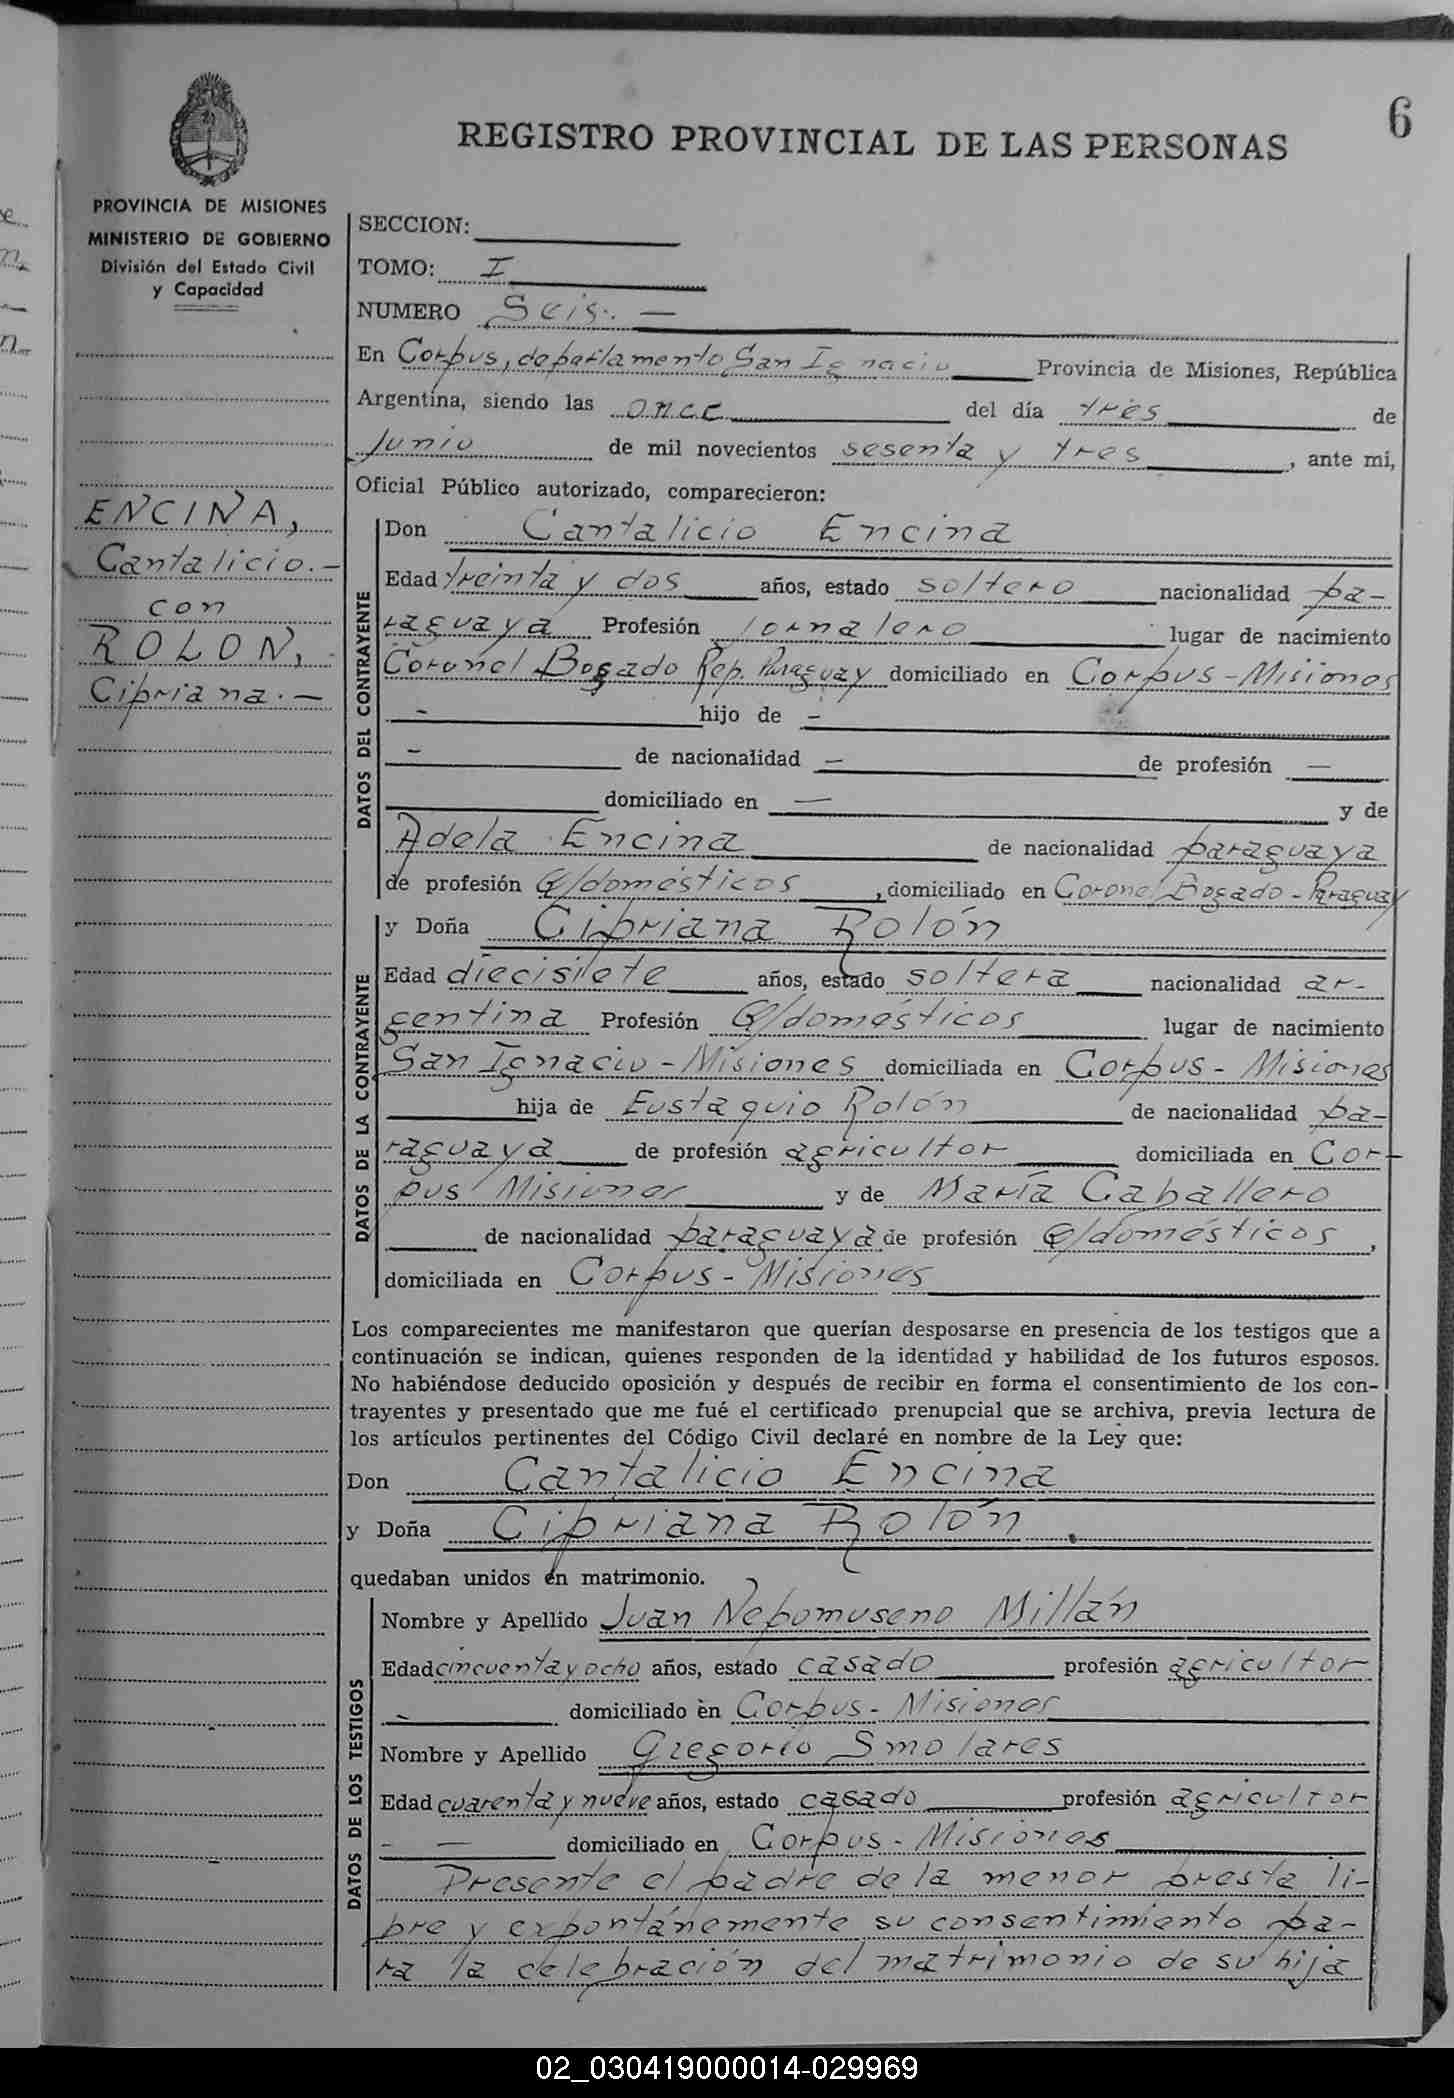 6
REGISTRO PROVINCIAL DE LAS PERSONAS
PROVINCIA DE MISIONES
MINISTERIO DE GOBIERNO
División del Estado Civil
y Capacidad
ENCINA,
Cantalicio.-
con
ROLON,
Cipriana.-
SECCION:
TOMO: I
NUMERO Seis.-
En Corpus, departamento San Ignacio Provincia de Misiones, República
Argentina, siendo las once del día tres de
Junio de mil novecientos sesenta y tres, ante mi,
Oficial Público autorizado, comparecieron:
DATOS DEL CONTRAYENTE
Don Cantalicio Encina
Edad treinta y dos años, estado soltero nacionalidad pa-
raguaya Profesión Jornalero lugar de nacimiento
Coronel Bogado Rep. Paraguay domiciliado en Corpus - Misiones
- hijo de -
- de nacionalidad - de profesión -
domiciliado en - y de
Adela Encina de nacionalidad paraguaya
de profesión Q/domésticos, domiciliado en Coronel Bogado - Paraguay
DATOS DE LA CONTRAYENTE
y Doña Cipriana Rolón
Edad diecisiete años, estado soltera nacionalidad ar-
gentina Profesión Q/domésticos lugar de nacimiento
San Ignacio - Misiones domiciliada en Corpus - Misiones
hija de Eustaquio Rolón de nacionalidad pa-
raguaya de profesión agricultor domiciliada en Cor-
pus Misiones y de María Caballero
de nacionalidad paraguaya de profesión Q/domésticos,
domiciliada en Corpus - Misiones
Los comparecientes me manifestaron que querían desposarse en presencia de los testigos que a
continuación se indican, quienes responden de la identidad y habilidad de los futuros esposos.
No habiéndose deducido oposición y después de recibir en forma el consentimiento de los con-
trayentes y presentado que me fué el certificado prenupcial que se archiva, previa lectura de
los artículos pertinentes del Código Civil declaré en nombre de la Ley que:
Don Cantalicio Encina
y Doña Cipriana Rolón.
quedaban unidos en matrimonio.
DATOS DE LOS TESTIGOS
Nombre y Apellido Juan Nepomuseno Millán
Edad cincuenta y ocho años, estado casado profesión agricultor
- domiciliado en Corpus - Misiones
Nombre y Apellido Gregorio Smolares
Edad cuarenta y nueve años, estado casado profesión agricultor
- - domiciliado en Corpus - Misiones
Presente el padre de la menor presta li-
bre y expontánemente su consentimiento pa-
ra la celebración del matrimonio de su hija
02_030419000014-029969